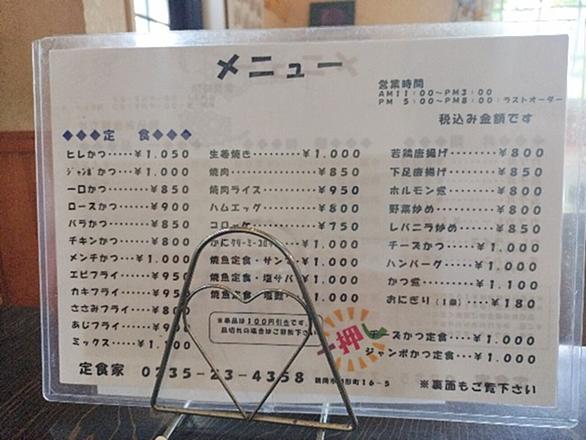 メニュー
営業時間
AM11:00~PM3:00
PM 5:00~PM8:00:ラストオーダー
税込み金額です
◆◆◆定 食◆◆◆
ヒレかつ・・・・・¥1.050
ジャンボかつ・・・・¥1.000
一口かつ・・・・・¥850
ロースかつ・・・・¥900
バラかつ・・・・・¥850
チキンかつ・・・・¥800
メンチかつ・・・・¥1.000
エビフライ・・・・¥950
カキフライ・・・・¥950
ささみフライ・・・¥800
あじフライ・・・・¥9
ミックス・・・・・¥1.
生姜焼き・・・・・・・・・¥1.000
焼肉・・・・・・・・・・・¥850
焼肉ライス・・・・・・・・¥950
ハムエッグ・・・・・・・・¥800
コロッケ・・・・・・・・・¥750
かにクリーミーコロ ¥1.000
焼魚定食・サン ¥1.000
焼魚定食・塩サバ ¥1.000
焼魚定食・塩 ¥1.000
若鶏唐揚げ・・・・・¥800
下足唐揚げ・・・・・¥850
ホルモン煮・・・・・¥800
野菜炒め・・・・・・¥800
レバニラ炒め・・・・¥850
チーズかつ・・・・・¥1.000
ハンバーグ・・・・・¥1.000
かつ煮・・・・・・・¥1.100
おにぎり(1個)・・・・¥180
※単品は100円引きです
品切れの場合はご容赦下
一押
ーズかつ定食・・・¥1.000
ジャンボかつ定食・・・¥1.000
定食家 0235-23-4358 鶴岡市 形町16-5
※裏面もご覧下さい